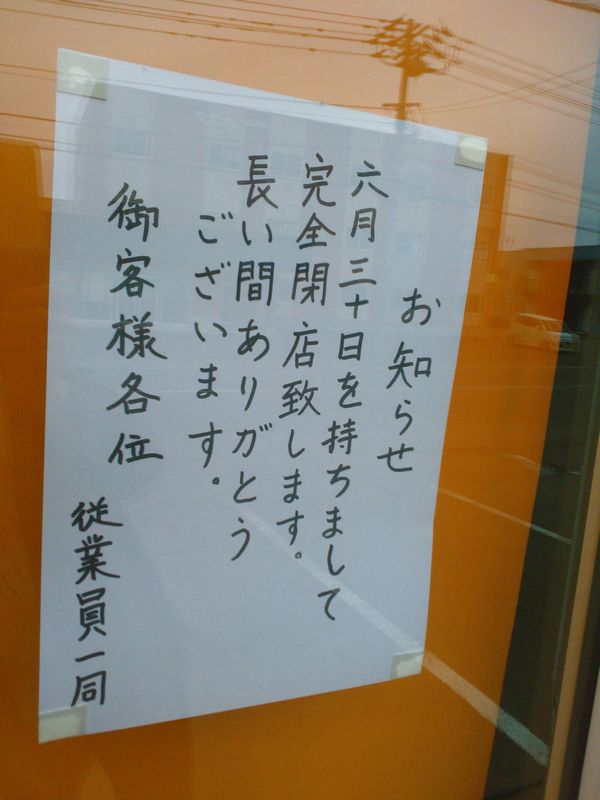 お知らせ
六月三十日を持ちまして
完全閉店致します。
長い間ありガとう
ございます。
御客様各位
従業員一同